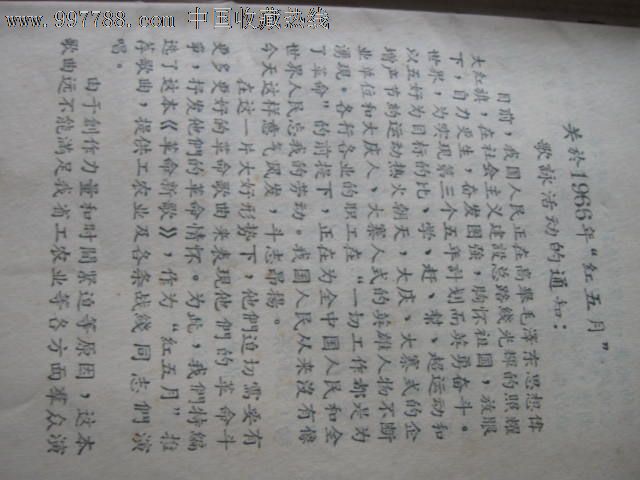 www.997788.com 中国收藏热线
关於1966年“紅五月”
歌詠活动的通知：
目前，我国人民正在高舉毛泽东思想偉
大紅旗，在社会主义建設总路綫光輝的照耀
下，自力更生，奋发图強，胸怀祖国，放眼
世界，为实現第三个五年計划而英勇奋斗。
以五好为目标的比、学、赶、帮、超运动和
增产节約运动热火朝天，大庆、大寨式的企
业单位和大庆人、大寨人式的英雄人物不断
湧現。各行各业的职工在“一切工作都是为
了革命”的前提下，正在为全中国人民和全
世界人民忘我的劳动。我国人民从来没有像
今天这样意气风发，斗志昂揚。
在这一片大好形势下，他們迫切需要有
更多更好的革命歌曲来表現他們的革命斗
爭，抒发他們的革命情怀。为此，我們特編
选了这本《革命新歌》，作为“紅五月”推
荐歌曲，提供工农业及各条战綫同志們演
唱。
由于創作力量和时間紧迫等原因，这本
歌曲远不能滿足我省工农业等各方面羣众演